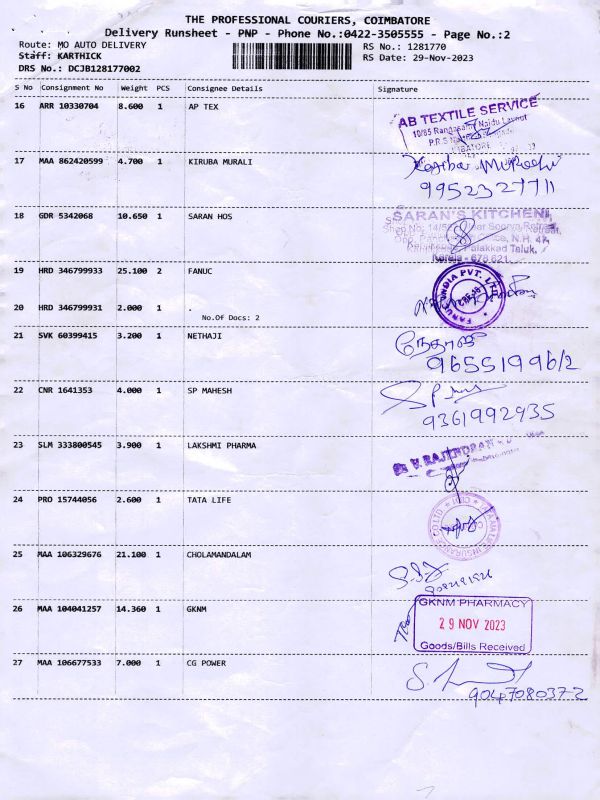 THE PROFESSIONAL COURIERS, COIMBATORE
Delivery Runsheet - PNP - Phone No.:0422-3505555 - Page No.:2
Route: MO AUTO DELIVERY
RS No.: 1281770
Staff: KARTHICK
RS Date: 29-Nov-2023
DRS No.: DCJB128177002
S No Consignment No Weight PCS Consignee Details Signature
16 ARR 10330704 8.600 1 AP TEX
AB TEXTILE SERVICE
17 MAA 862420599 4.700 1 KIRUBA MURALI
9952327711
18 GDR 5342068 10.650 1 SARAN HOS
SARAN'S KITCHEN
Palakkad Taluk,
Kerala - 678 621.
19 HRD 346799933 25.100 2 FANUC
FANUC INDIA PVT. LTD.
20 HRD 346799931 2.000 1 .
No.Of Docs: 2
21 SVK 60399415 3.200 1 NETHAJI
நேதாஜி
9655199612
22 CNR 1641353 4.000 1 SP MAHESH
9361992935
23 SLM 333800545 3.900 1 LAKSHMI PHARMA
V. RAJENDRAN
24 PRO 15744056 2.600 1 TATA LIFE
25 MAA 106329676 21.100 1 CHOLAMANDALAM
26 MAA 104041257 14.360 1 GKNM
GKNM PHARMACY
29 NOV 2023
Goods/Bills Received
27 MAA 106677533 7.000 1 CG POWER
9047080372